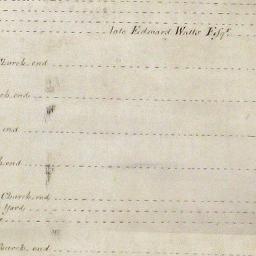 late Edward Watts Esqr.
Church end
ch end
end
h end
Church end
Yard
Church end